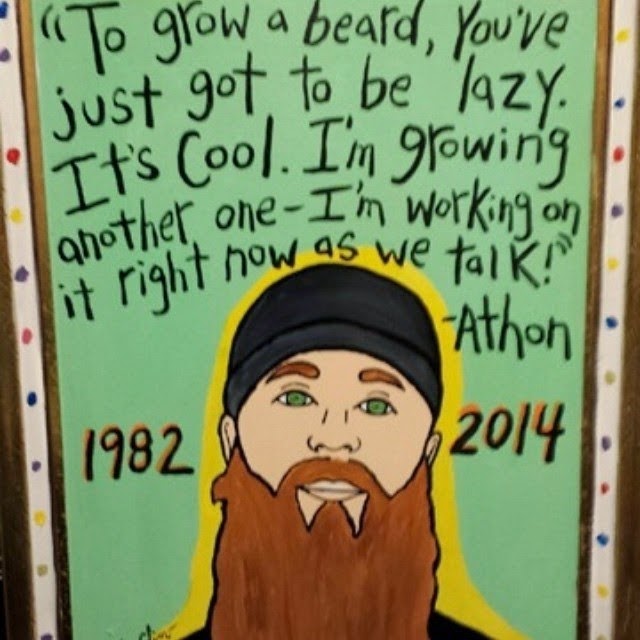 "To grow a beard, You've
just got to be lazy.
It's Cool. I'm growing
another one-I'm working on
it right now as we talk!"
-Athon
1982 2014